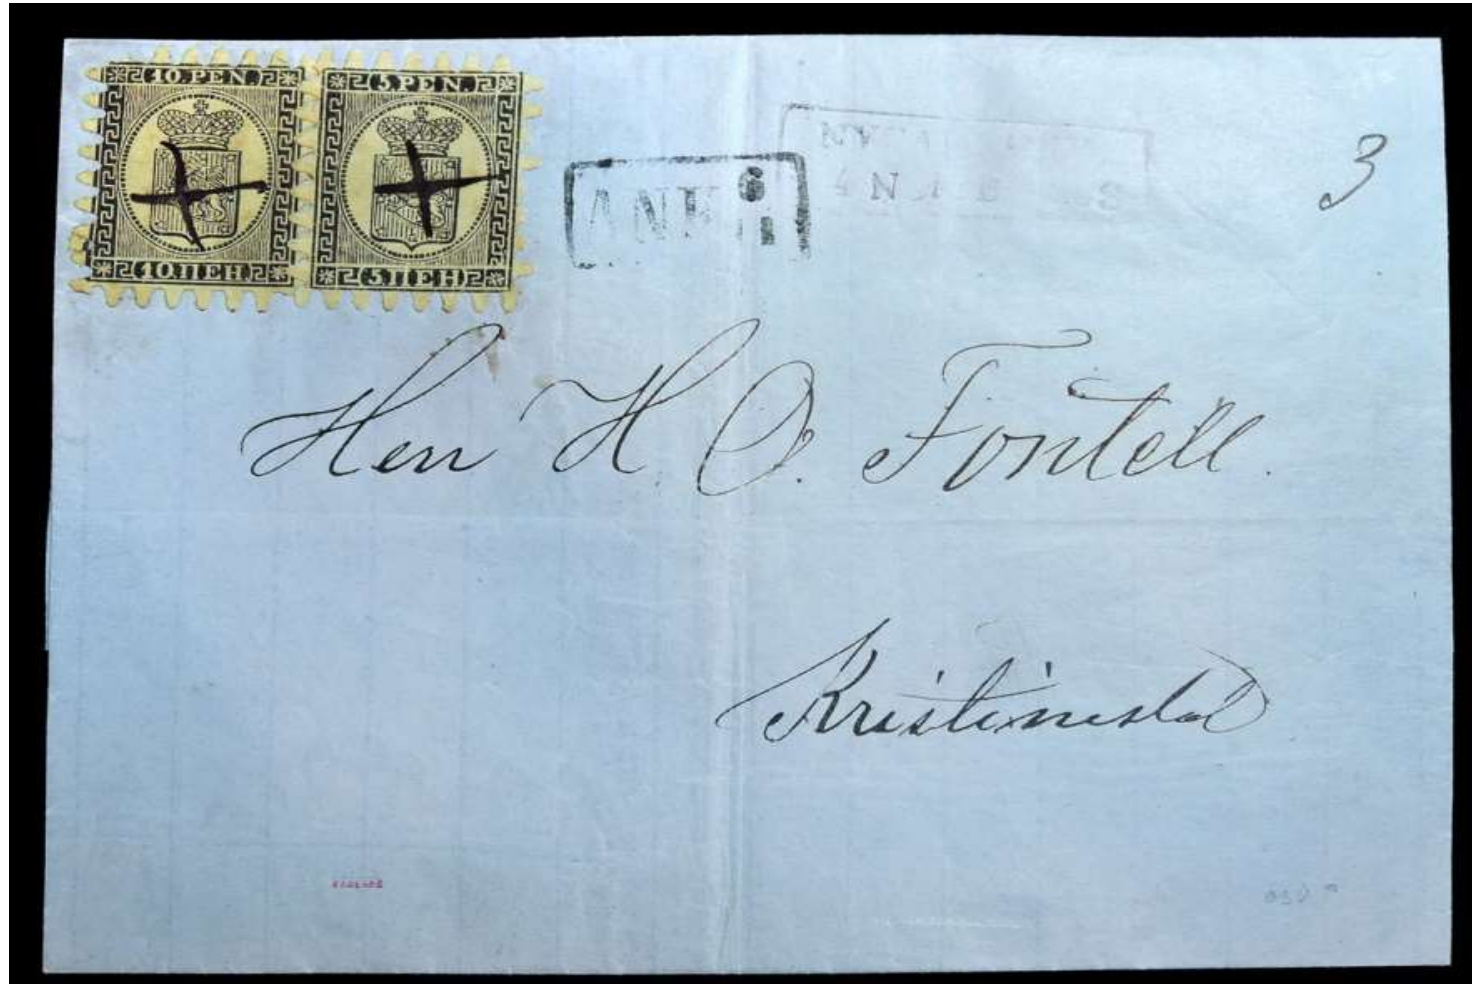 10.PEN. 5.PEN.
10.ПЕН. 5.ПЕН.
ANK 6
11
3
Herr H. O. Fontell.
Kristinestad